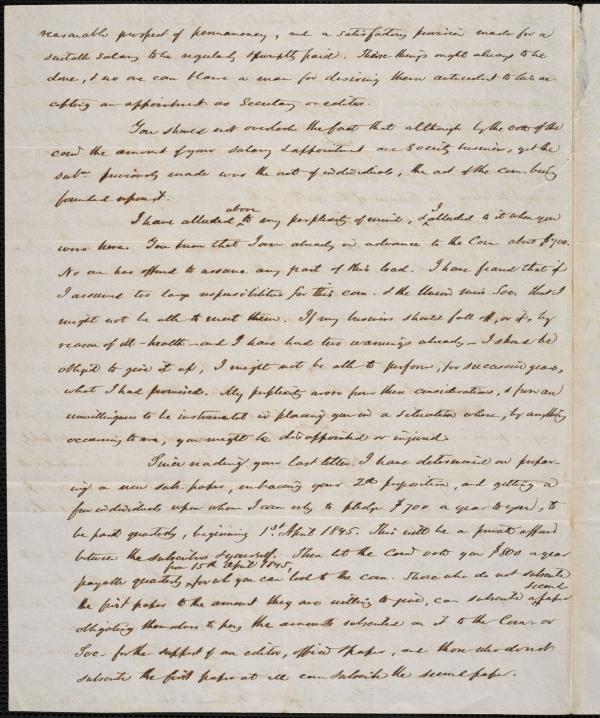 reasonable prospect of permanency, and a satisfactory provision made for a
suitable salary to be regularly & promptly paid. These things ought always to be
done, & no one can blame a man for desiring them antecedent to his ac-
cepting an appointment as Secretary or editor.
You should not overlook the fact that although by the vote of the
com. the amount of your salary & appointment are Society business, yet the
subn. previously made was the act of individuals, the act of the com. being
founded upon it.
I have alluded above to my perplexity of mind, & I alluded to it when you
were here. You know that I am already in advance to the Com. about $700.
No one has offered to assume any part of this load. I have feared that if
I assumed too large responsibilities for this com. & the Union Miss. Soc. that I
might not be able to meet them. If my business should fall off, or if, by
reason of ill-health – and I have had two warnings already – I should be
obliged to give it up, I might not be able to perform, for successive years,
what I had promised. My perplexity arose from these considerations, & from an
unwillingness to be instrumental in placing you in a situation where, by anything
occurring to me, you might be disappointed or injured.
Since reading your last letter I have determined on prepar-
ing a new sub. paper, embracing your 2d proposition, and getting a
few individuals upon whom I can rely to pledge $700 a year to you, to
be paid quarterly, beginning 1st. April 1845. This will be a private affair
between the subscribers & yourself. Then let the Com. vote you $800 a year
payable quarterly from 15th April 1845, for wh. you can look to the com. Those who do not subscribe
the first paper to the amount they are willing to give, can subscribe a second paper
obligating themselves to pay the amounts subscribed on it to the Com. or
Soc. for the support of an editor, office & paper, and those who do not
subscribe the first paper at all can subscribe the second paper.